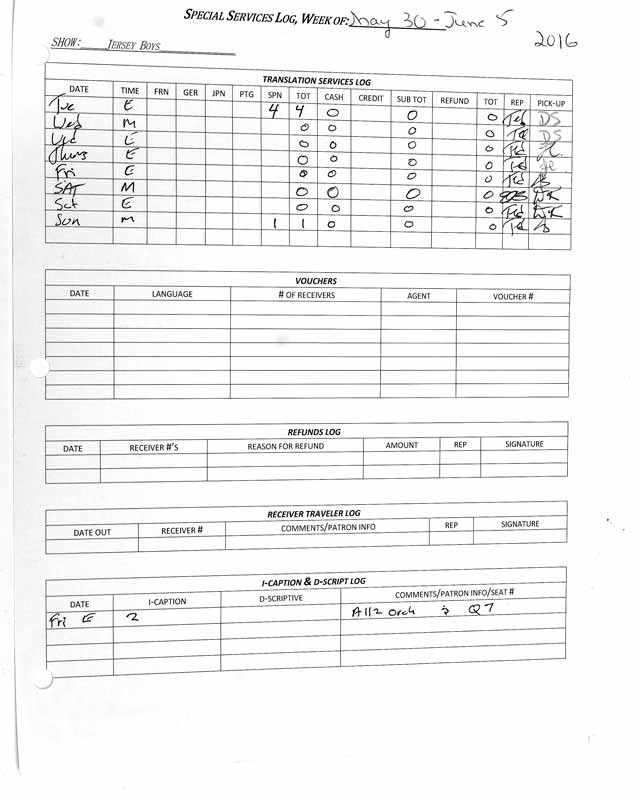 SPECIAL SERVICES LOG, WEEK OF: May 30 - June 5
2016
SHOW: JERSEY BOYS
TRANSLATION SERVICES LOG
DATE TIME FRN GER JPN PTG SPN TOT CASH CREDIT SUB TOT REFUND TOT REP PICK-UP
Tue E 4 4 0 0 0 Ted DS
Wed M 0 0 0 0 Ted DS
Wed E 0 0 0 0 Ted
Thurs E 0 0 0 0 Ted
Fri E 0 0 0 0 Ted
SAT M 0 0 0 0
Sat E 0 0 0 0 Ted
Sun M 1 1 0 0 0 Ted
VOUCHERS
DATE LANGUAGE # OF RECEIVERS AGENT VOUCHER #
REFUNDS LOG
DATE RECEIVER #'S REASON FOR REFUND AMOUNT REP SIGNATURE
RECEIVER TRAVELER LOG
DATE OUT RECEIVER # COMMENTS/PATRON INFO REP SIGNATURE
I-CAPTION & D-SCRIPT LOG
DATE I-CAPTION D-SCRIPTIVE COMMENTS/PATRON INFO/SEAT #
Fri E 2 A112 Orch Q7